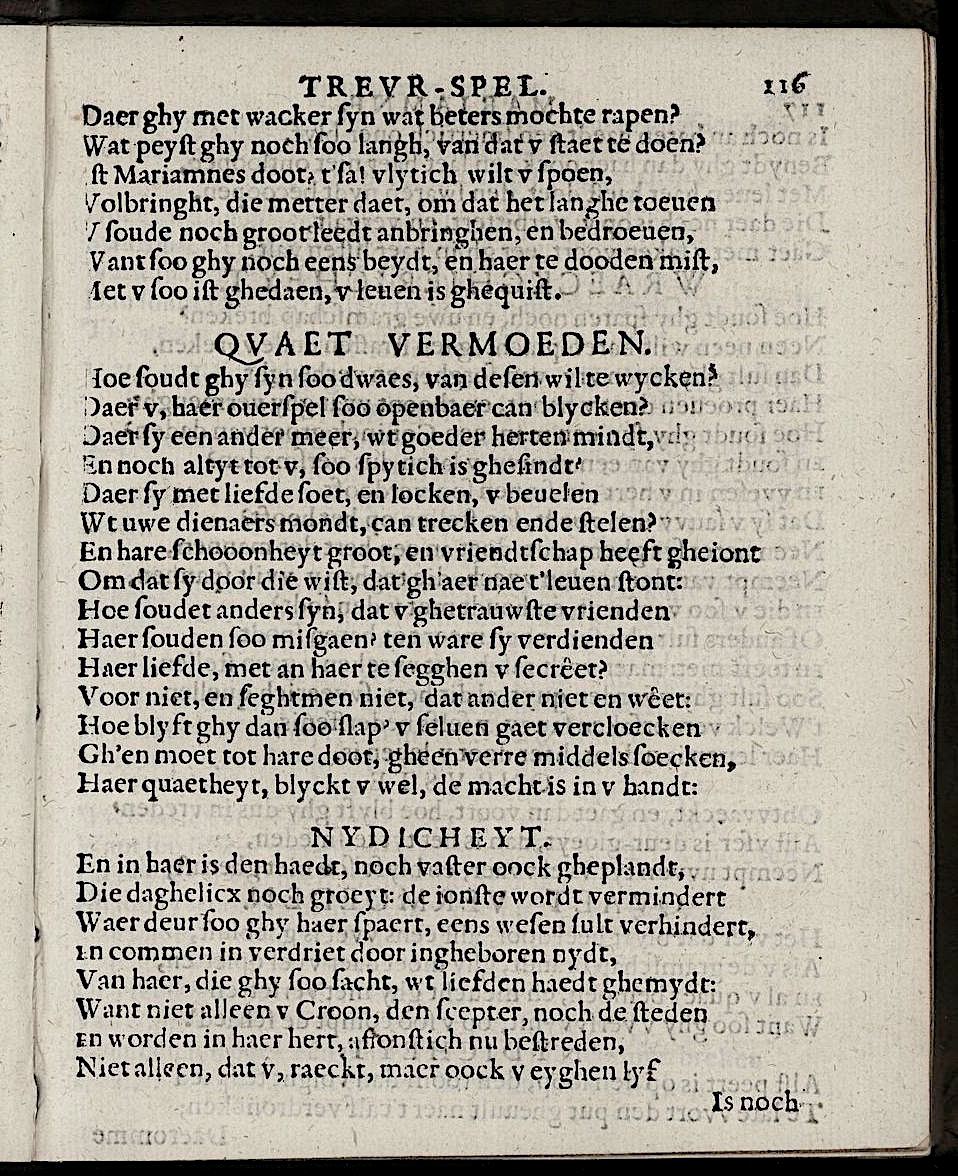 TREVR-SPEL. 116
Daer ghy met wacker ſyn wat beters mochte rapen?
Wat peyſt ghy noch ſoo langh, van dat v ſtaet te doen?
ſt Mariamnes doot? t'ſa! vlytich wilt v ſpoen,
Volbringht, die metter daet, om dat het langhe toeuen
V ſoude noch groot leedt anbringhen, en bedroeuen,
Want ſoo ghy noch eens beydt, en haer te dooden miſt,
Met v ſoo iſt ghedaen, v leuen is ghequiſt.
QVAET VERMOEDEN.
Hoe ſoudt ghy ſyn ſoo dwaes, van deſen wil te wycken?
Daer v, haer ouerſpel ſoo openbaer can blycken?
Daer ſy een ander meer, wt goeder herten mindt,
En noch altyt tot v, ſoo ſpytich is gheſindt?
Daer ſy met liefde ſoet, en locken, v beuelen
Wt uwe dienaers mondt, can trecken ende ſtelen?
En hare ſchooonheyt groot, en vriendtſchap heeft gheiont
Om dat ſy door die wiſt, dat gh'aer nae t'leuen ſtont:
Hoe ſoudet anders ſyn, dat v ghetrauwſte vrienden
Haer ſouden ſoo miſgaen? ten ware ſy verdienden
Haer liefde, met an haer te ſegghen v ſecrêet?
Voor niet, en ſeghtmen niet, dat ander niet en wêet:
Hoe blyft ghy dan ſoo ſlap? v ſeluen gaet vercloecken
Gh'en moet tot hare doot, gheen verre middels ſoecken,
Haer quaetheyt, blyckt v wel, de macht is in v handt:
NYDICHEYT.
En in haer is den haedt, noch vaſter oock gheplandt,
Die daghelicx noch groeyt: de ionſte wordt vermindert
Waer deur ſoo ghy haer ſpaert, eens weſen ſult verhindert,
En commen in verdriet door ingheboren nydt,
Van haer, die ghy ſoo ſacht, wt liefden haedt ghemydt:
Want niet alleen v Croon, den ſcepter, noch de ſteden
En worden in haer hert, afionſtich nu beſtreden,
Niet alleen, dat v, raeckt, maer oock v eyghen lyf
Is noch